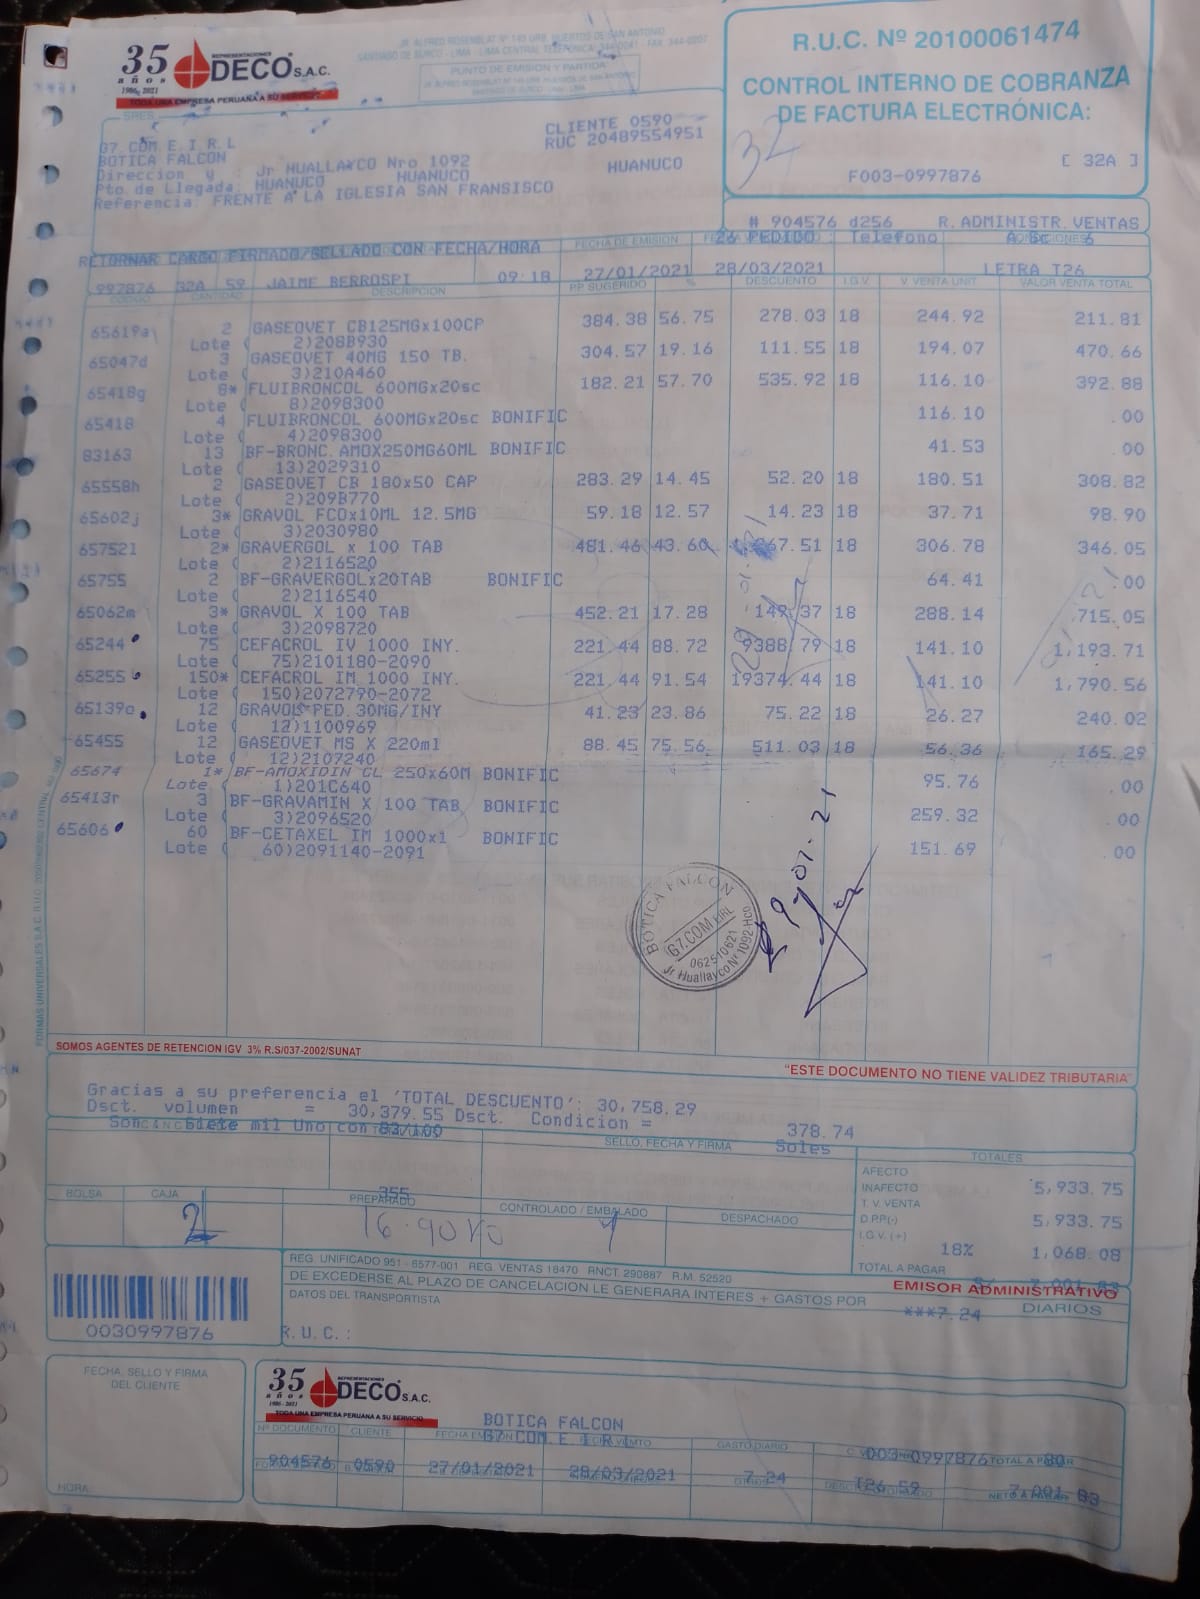 35 años 1986-2021
REPRESENTACIONES DECO S.A.C.
TODA UNA EMPRESA PERUANA A SU SERVICIO
JR. ALFREDO ROSENBLAT Nº 149 URB. HUERTOS DE SAN ANTONIO
SANTIAGO DE SURCO - LIMA - LIMA CENTRAL TELEFONICA: 344-0041 - FAX 344-0007
PUNTO DE EMISION Y PARTIDA
R.U.C. Nº 20100061474
CONTROL INTERNO DE COBRANZA
DE FACTURA ELECTRÓNICA:
32
[ 32A ]
F003-0997876
SRES.
G7.COM.E.I.R.L
BOTICA FALCON
CLIENTE 0590
RUC 20489554951
Direccion y : Jr HUALLAYCO Nro 1092 HUANUCO
Pto.de Llegada: HUANUCO HUANUCO
Referencia: FRENTE A LA IGLESIA SAN FRANSISCO
# 904576 d256 R.ADMINISTR.VENTAS
RETORNAR CARGO FIRMADO/SELLADO CON FECHA/HORA
FECHA DE EMISION
26 PEDIDO : Telefono
997876 32A 59 JAIME BERROSPI 09:18 27/01/2021 28/03/2021 LETRA T26
CODIGO CANTIDAD DESCRIPCION P.P. SUGERIDO % DESCUENTO I.G.V. V. VENTA UNIT VALOR VENTA TOTAL
65619a 2 GASEOVET CB125MGx100CP 384.38 56.75 278.03 18 244.92 211.81
Lote ( 2)208B930
65047d 3 GASEOVET 40MG 150 TB. 304.57 19.16 111.55 18 194.07 470.66
Lote ( 3)210A460
65418g 8* FLUIBRONCOL 600MGx20sc 182.21 57.70 535.92 18 116.10 392.88
Lote ( 8)2098300
65418 4 FLUIBRONCOL 600MGx20sc BONIFIC 116.10 .00
Lote ( 4)2098300
83163 13 BF-BRONC.AMOX250MG60ML BONIFIC 41.53 .00
Lote ( 13)2029310
65558h 2 GASEOVET CB 180x50 CAP 283.29 14.45 52.20 18 180.51 308.82
Lote ( 2)209B770
65602j 3* GRAVOL FCOx10ML 12.5MG 59.18 12.57 14.23 18 37.71 98.90
Lote ( 3)2030980
657521 2* GRAVERGOL x 100 TAB 481.46 43.60 67.51 18 306.78 346.05
Lote ( 2)2116520
65755 2 BF-GRAVERGOLx20TAB BONIFIC 64.41 .00
Lote ( 2)2116540
65062m 3* GRAVOL X 100 TAB 452.21 17.28 149.37 18 288.14 715.05
Lote ( 3)2098720
65244 75 CEFACROL IV 1000 INY. 221.44 88.72 9388.79 18 141.10 1,193.71
Lote ( 75)2101180-2090
65255 150* CEFACROL IM 1000 INY. 221.44 91.54 19374.44 18 141.10 1,790.56
Lote ( 150)2072790-2072
65139o 12 GRAVOL PED.30MG/INY 41.23 23.86 75.22 18 26.27 240.02
Lote ( 12)1100969
65455 12 GASEOVET MS X 220ml 88.45 75.56 511.03 18 56.36 165.29
Lote ( 12)2107240
65674 1* BF-AMOXIDIN CL 250x60M BONIFIC 95.76 .00
Lote ( 1)201C640
65413r 3 BF-GRAVAMIN X 100 TAB BONIFIC 259.32 .00
Lote ( 3)2096520
65606 60 BF-CETAXEL IM 1000x1 BONIFIC 151.69 .00
Lote ( 60)2091140-2091
BOTICA FALCON
G7.COM EIRL
062510621
Jr. Huallayco Nº 1092-Hco
SOMOS AGENTES DE RETENCION IGV 3% R.S/037-2002/SUNAT
"ESTE DOCUMENTO NO TIENE VALIDEZ TRIBUTARIA"
Gracias a su preferencia el 'TOTAL DESCUENTO': 30,758.29
Dsct. volumen = 30,379.55 Dsct. Condicion = 378.74
Son: Siete mil Uno con 83/100 Soles
SELLO, FECHA Y FIRMA
TOTALES
AFECTO 5,933.75
INAFECTO
T. V. VENTA 5,933.75
D.P.P.(-)
I.G.V. (+) 18% 1,068.08
TOTAL A PAGAR S/ 7,001.83
BOLSA CAJA PREPARADO CONTROLADO / EMBALADO DESPACHADO
355
2
REG. UNIFICADO 951 - 6577-001 REG. VENTAS 18470 RNCT. 290887 R.M. 52520
EMISOR ADMINISTRATIVO
DE EXCEDERSE AL PLAZO DE CANCELACION LE GENERARA INTERES + GASTOS POR ***7.24 DIARIOS
DATOS DEL TRANSPORTISTA
R.U.C.:
0030997876
FECHA, SELLO Y FIRMA
DEL CLIENTE
HORA
35 años 1986-2021
REPRESENTACIONES DECO S.A.C.
TODA UNA EMPRESA PERUANA A SU SERVICIO
BOTICA FALCON
G7.COM.E.I.R.L
Nº DOCUMENTO CLIENTE GASTO DIARIO TOTAL A PAGAR
904576 0590 27/01/2021 28/03/2021 7.24 T26 59 7,001.83
003-0997876
NETO A PAGAR